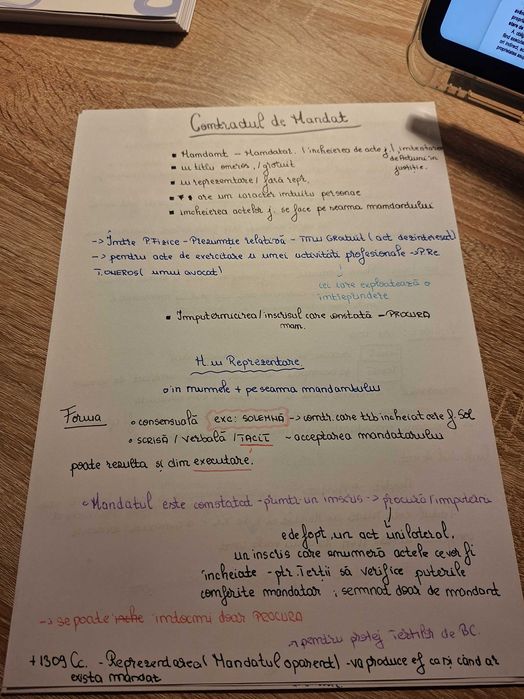 Contractul de Mandat
▪ Mandant - Mandatar. / încheierea de acte j / intentarea
de Acțiuni în
justiție.
▪ cu titlu oneros, / gratuit
▪ cu reprezentare / fără repr.
▪ are un caracter intuitu personae
▪ încheierea actelor j. se face pe seama mandantului
-> Între P. Fizice - Prezumție relativă - Titlu Gratuit (act dezinteresat)
-> pentru acte de exercitare a unei activități profesionale -> P.Re
T. ONEROS (unui avocat)
cei care exploatează o
întreprindere
▪ Împuternicirea / înscrisul care constată - PROCURA
man.
M. cu Reprezentare
o în numele + pe seama mandantului
Forma
o consensuală exc: SOLEMNĂ -> contr. care trb încheiat cere f. Sol
o SCRISĂ / verbală / TACIT - acceptarea mandatarului
poate rezulta și din executare.
Mandatul este constatat - printr-un înscris -> procură / împutern
e de fapt, un act unilateral,
un înscris care enumeră actele ce vor fi
încheiate - ptr. Terții să verifice puterile
conferite mandatar; semnat doar de mandant
-> se poate întocmi doar PROCURA
pentru protej Terților de BC.
+ 1309 Cc. - Reprezentarea (Mandatul aparent) - va produce ef ca și când ar
exista mandat